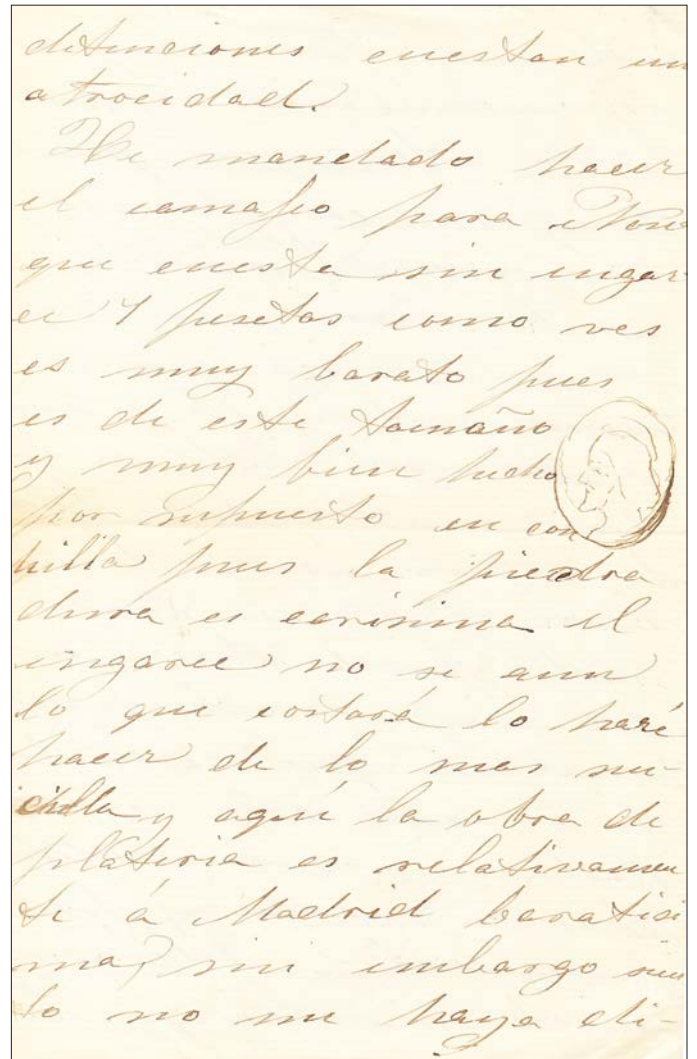 detenciones cuestan un
atrocidad.
He mandado hacer
el camafeo para Nene
que cuesta sin engar
ce 4 pesetas como ves
es muy barato pues
es de este tamaño
y muy bien hecho
por supuesto en con
hilla pues la piedra
dura es carisima el
engarce no se aun
lo que costará lo haré
hacer de lo mas sen-
cillo y aqui la obra de
plateria es relativamen
te á Madrid baratisi
ma, sin embargo sien
to no me haya di-